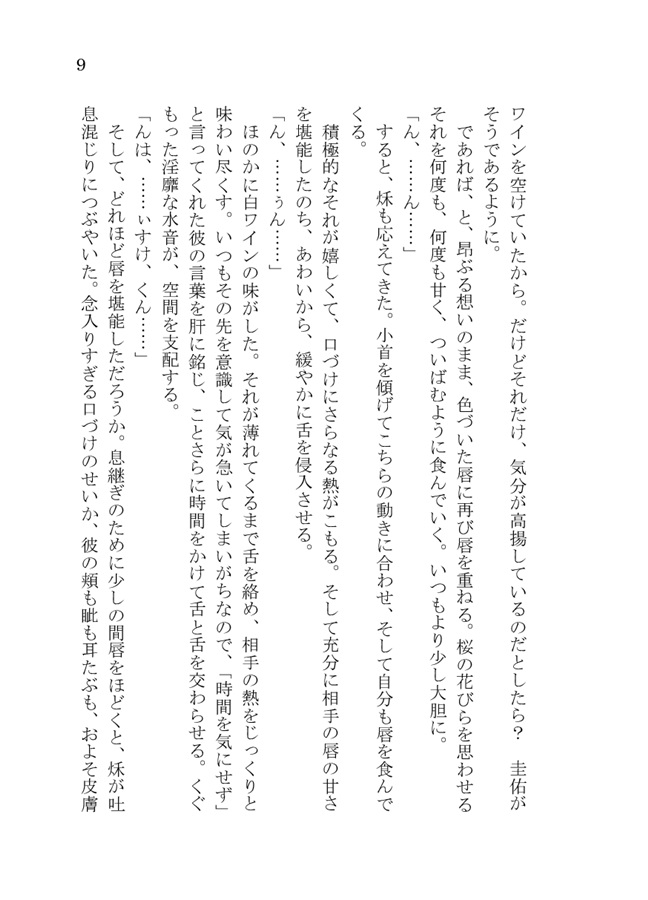 9
ワインを空けていたから。だけどそれだけ、気分が高揚しているのだとしたら？　圭佑が
そうであるように。
　であれば、と、昂ぶる想いのまま、色づいた唇に再び唇を重ねる。桜の花びらを思わせる
それを何度も、何度も甘く、ついばむように食んでいく。いつもより少し大胆に。
「ん、……ん……」
　すると、烋も応えてきた。小首を傾げてこちらの動きに合わせ、そして自分も唇を食んで
くる。
　積極的なそれが嬉しくて、口づけにさらなる熱がこもる。そして充分に相手の唇の甘さ
を堪能したのち、あわいから、緩やかに舌を侵入させる。
「ん、……ぅん……」
　ほのかに白ワインの味がした。それが薄れてくるまで舌を絡め、相手の熱をじっくりと
味わい尽くす。いつもその先を意識して気が急いてしまいがちなので、「時間を気にせず」
と言ってくれた彼の言葉を肝に銘じ、ことさらに時間をかけて舌と舌を交わらせる。くぐ
もった淫靡な水音が、空間を支配する。
「んは、……ぃすけ、くん……」
　そして、どれほど唇を堪能しただろうか。息継ぎのために少しの間唇をほどくと、烋が吐
息混じりにつぶやいた。念入りすぎる口づけのせいか、彼の頬も眦も耳たぶも、およそ皮膚